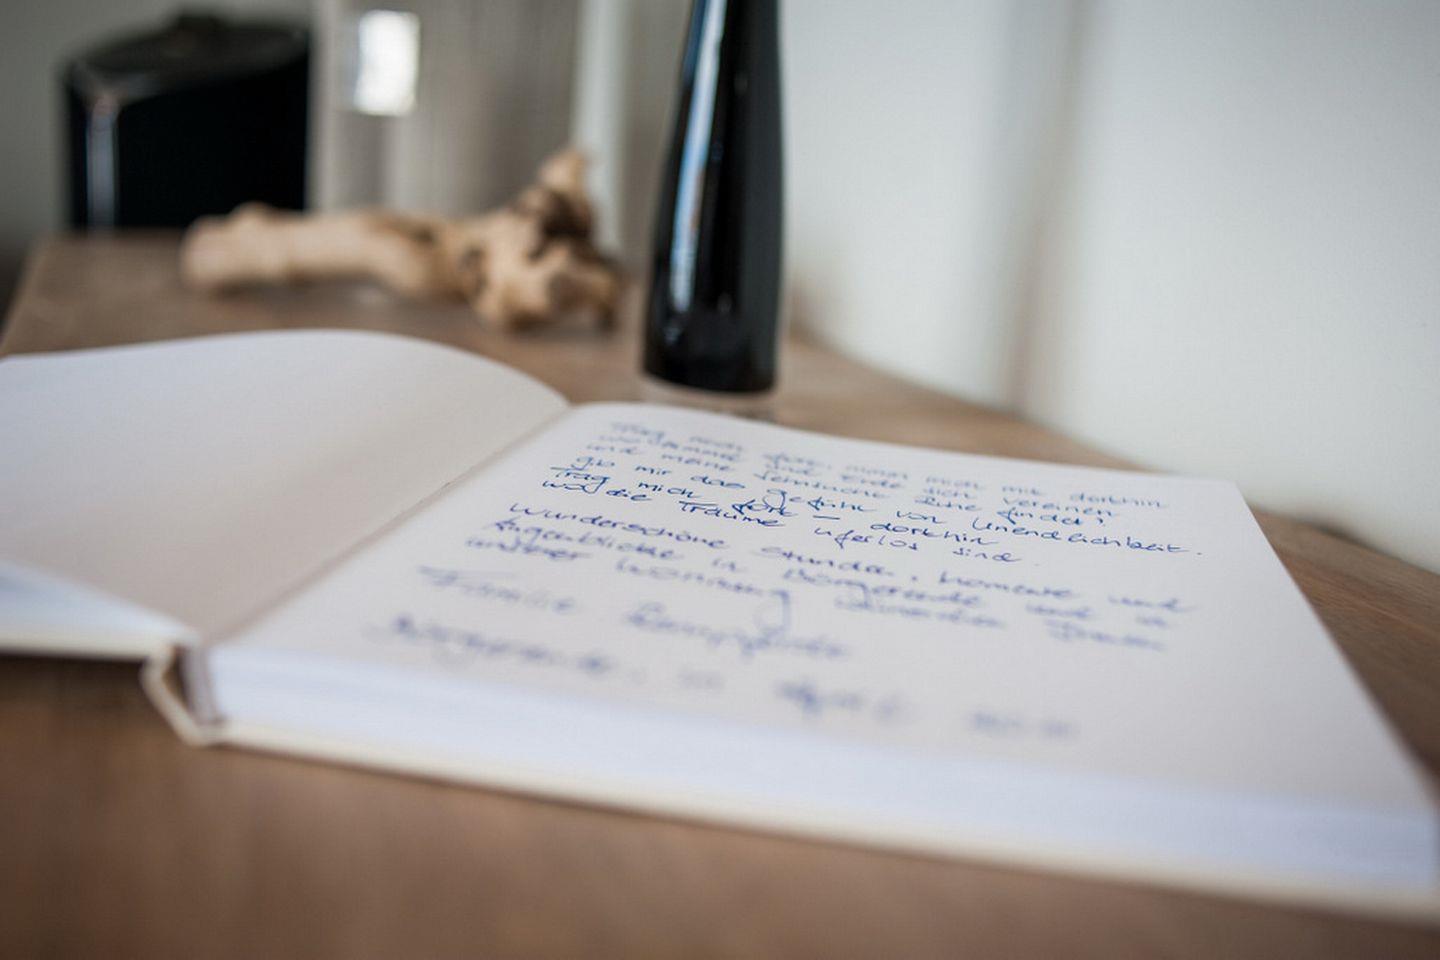 Trag mich fort, nimm mich mit dorthin
wo Himmel und Erde sich vereinen
und meine Sehnsucht Ruhe findet,
gib mir das Gefühl von Unendlichkeit.
Trag mich fort – dorthin
wo die Träume uferlos sind.
Wunderschöne Stunden, Momente und
Augenblicke in Börgerende und in
unserer Wohnung wünschen Ihnen
Familie
Börgerende, im April